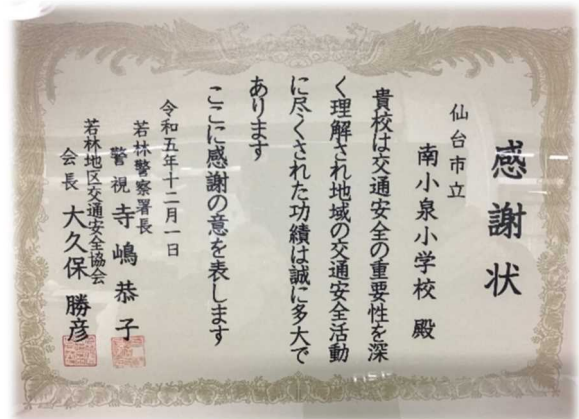 感謝状
仙台市立
南小泉小学校 殿
貴校は交通安全の重要性を深
く理解され地域の交通安全活動
に尽くされた功績は誠に多大で
あります
ここに感謝の意を表します
令和五年十二月一日
若林警察署長
警視 寺嶋 恭子
若林地区交通安全協会
会長 大久保 勝彦